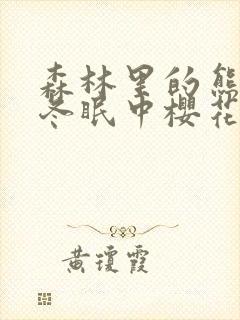 森林里的熊
冬眠中樱花
黄琼霞